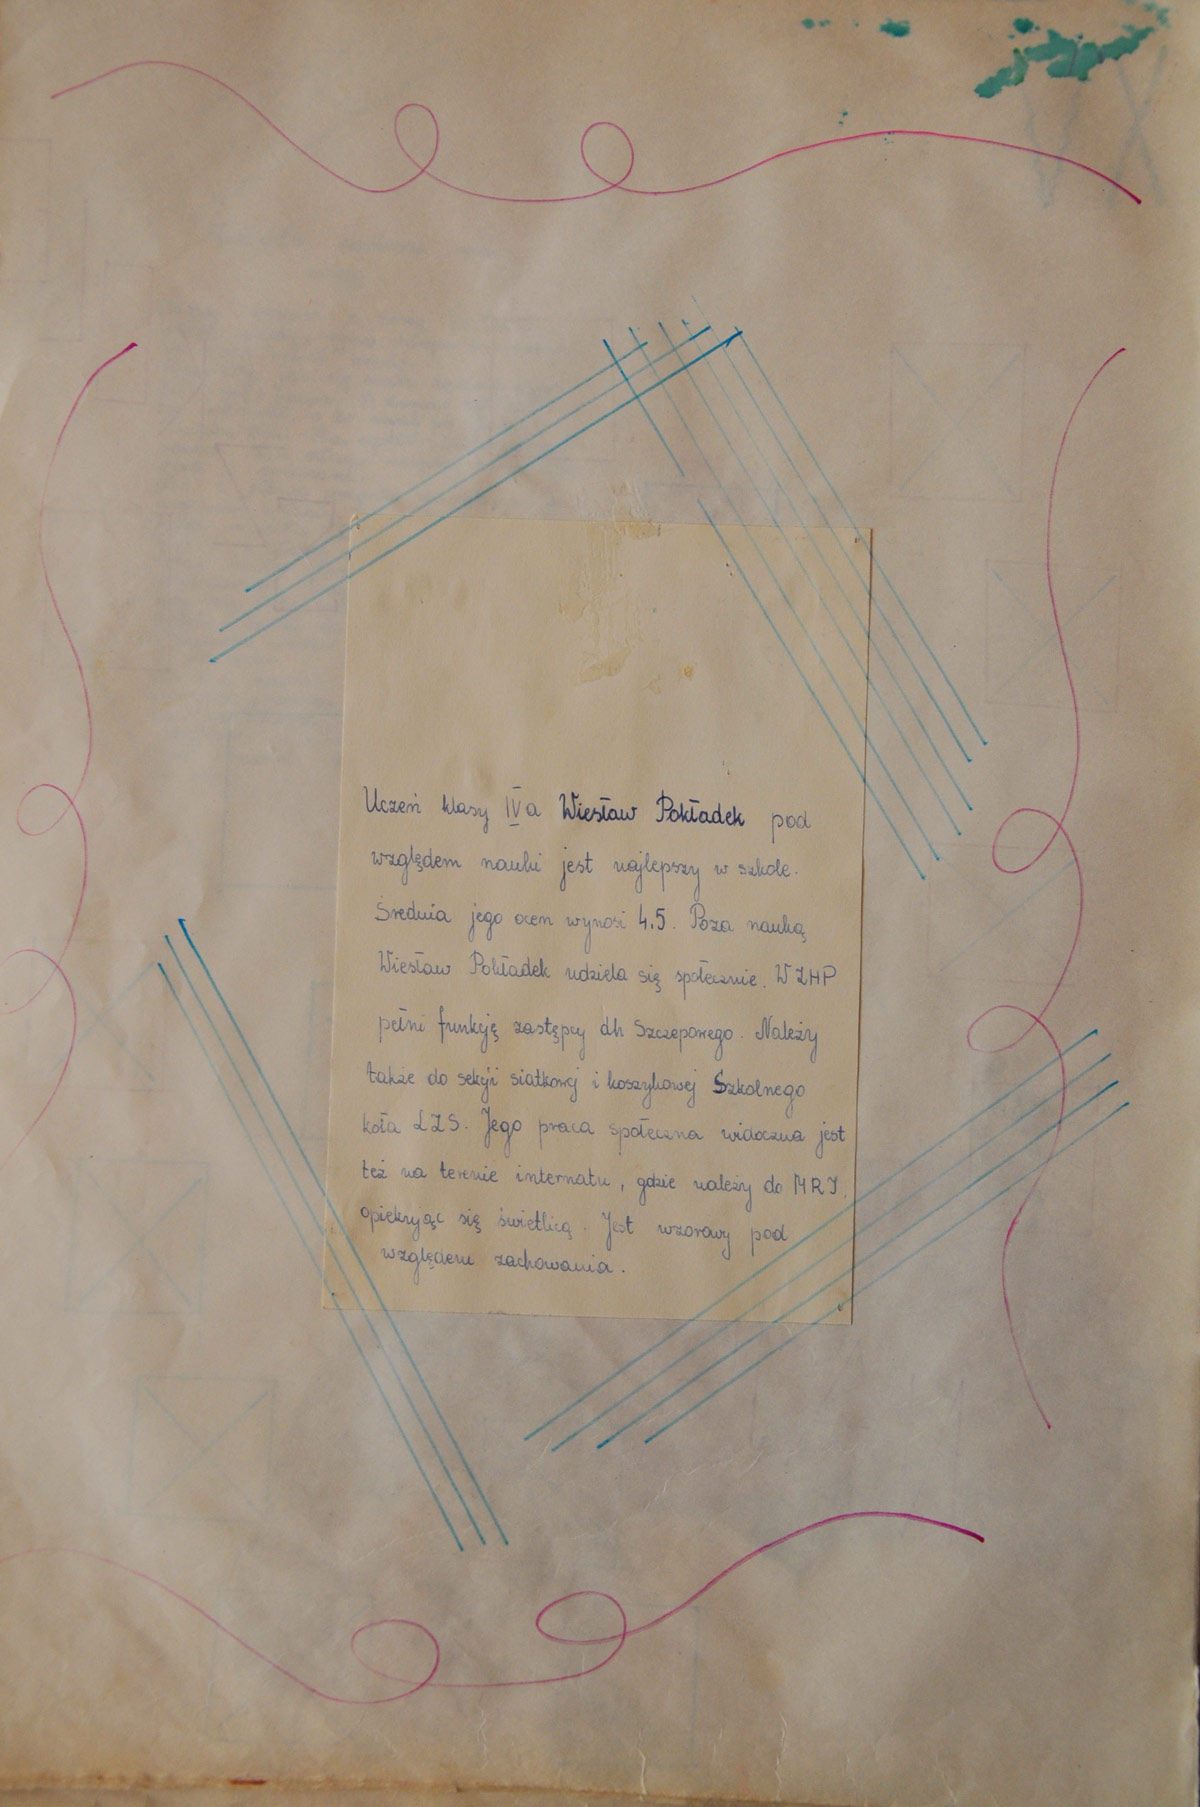 Uczeń klasy IVa Wiesław Pokładek pod
względem nauki jest najlepszy w szkole.
Średnia jego ocen wynosi 4.5. Poza nauką
Wiesław Pokładek udziela się społecznie. W ZHP
pełni funkcję zastępcy dh Szczepowego. Należy
także do sekcji siatkowej i koszykowej Szkolnego
koła LZS. Jego praca społeczna widoczna jest
też na terenie internatu, gdzie należy do MRI,
opiekując się świetlicą. Jest wzorowy pod
względem zachowania.